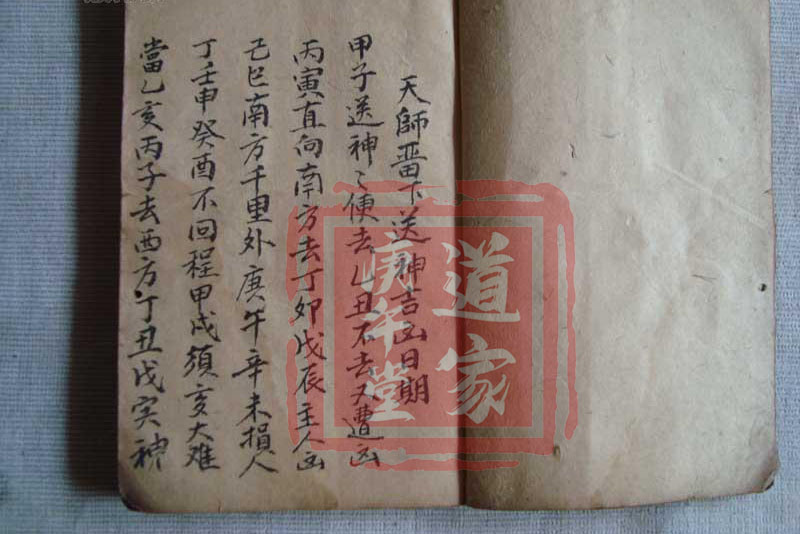 天師畨下送神吉凶日期
甲子送神〻便去乙丑不去又遭凶
丙寅直向南方去丁卯戊辰主人凶
己巳南方千里外庚午辛未損人
丁壬申癸酉不回程甲戌須亥大难
當乙亥丙子去西方丁丑戊寅神
道家
庚午堂